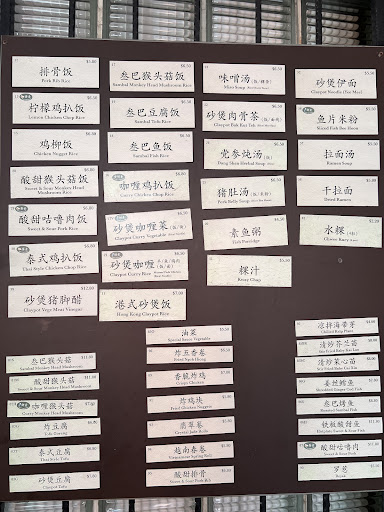 排骨饭
Pork Rib Rice
$5.50
柠檬鸡扒饭
Lemon Chicken Chop Rice
$6.50
鸡柳饭
Chicken Nugget Rice
酸甜猴头菇饭
Sweet & Sour Monkey Head Mushroom Rice
酸甜咕噜肉饭
Sweet & Sour Pork Rice
泰式鸡扒饭
Thai Style Chicken Chop Rice
砂煲猪脚醋
Claypot Vege Meat Vinegar
$12.00
叁巴猴头菇饭
Sambal Monkey Head Mushroom Rice
$6.50
叁巴豆腐饭
Sambal Tofu Rice
叁巴鱼饭
Sambal Fish Rice
咖喱鸡扒饭
Curry Chicken Chop Rice
砂煲咖喱菜
Claypot Curry Vegetable
砂煲咖喱
Claypot Curry Rice
港式砂煲饭
Hong Kong Claypot Rice
味噌汤
Miso Soup
砂煲肉骨茶
Claypot Bak Kut Teh
党参炖汤
Dong Shen Herbal Soup
猪肚汤
Pork Belly Soup
素鱼粥
Fish Porridge
粿汁
Kway Chap
砂煲伊面
Claypot Noodle (Yee Mee)
鱼片米粉
Sliced Fish Bee Hoon
拉面汤
Ramen Soup
干拉面
Dried Ramen
水粿
Chwee Kuey
叁巴猴头菇
Sambal Monkey Head Mushroom
酸甜猴头菇
Sweet & Sour Monkey Head Mushroom
咖喱猴头菇
Curry Monkey Head Mushroom
炸豆腐
Tofu Goreng
泰式豆腐
Thai Style Tofu
砂煲豆腐
Claypot Tofu
油菜
Special Sauce Vegetable
炸五香卷
Fried Ngoh Hiong
香脆炸鸡
Crispy Chicken
炸鸡块
Fried Chicken Nugget
翡翠卷
Crystal Jade Rolls
越南春卷
Vietnamese Spring Roll
酸甜排骨
Sweet & Sour Pork Rib
凉拌海带芽
Chilled Kelp Plate
清炒芥兰苗
Stir Fried Baby Kai Lan
清炒菜心苗
姜丝鲷鱼
Shredded Ginger Fish
叁巴烤鱼
Roasted Sambal Fish
铁板酸甜鱼
Hotplate Sweet & Sour Fish
酸甜咕噜肉
Sweet & Sour Pork
罗惹
Rojak